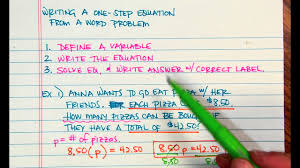 WRITING A ONE-STEP EQUATION
FROM A WORD PROBLEM
1. DEFINE A VARIABLE
2. WRITE THE EQUATION
3. SOLVE EQ. & WRITE ANSWER W/ CORRECT LABEL.
EX 1) ANNA WANTS TO GO EAT PIZZA W/ HER
FRIENDS. EACH PIZZA $8.50.
HOW MANY PIZZAS CAN BE BOUGHT IF
THEY HAVE A TOTAL OF $42.50?
p = # of pizzas.
8.50(p) = 42.50 8.50p = 42.50
8.50 8.50